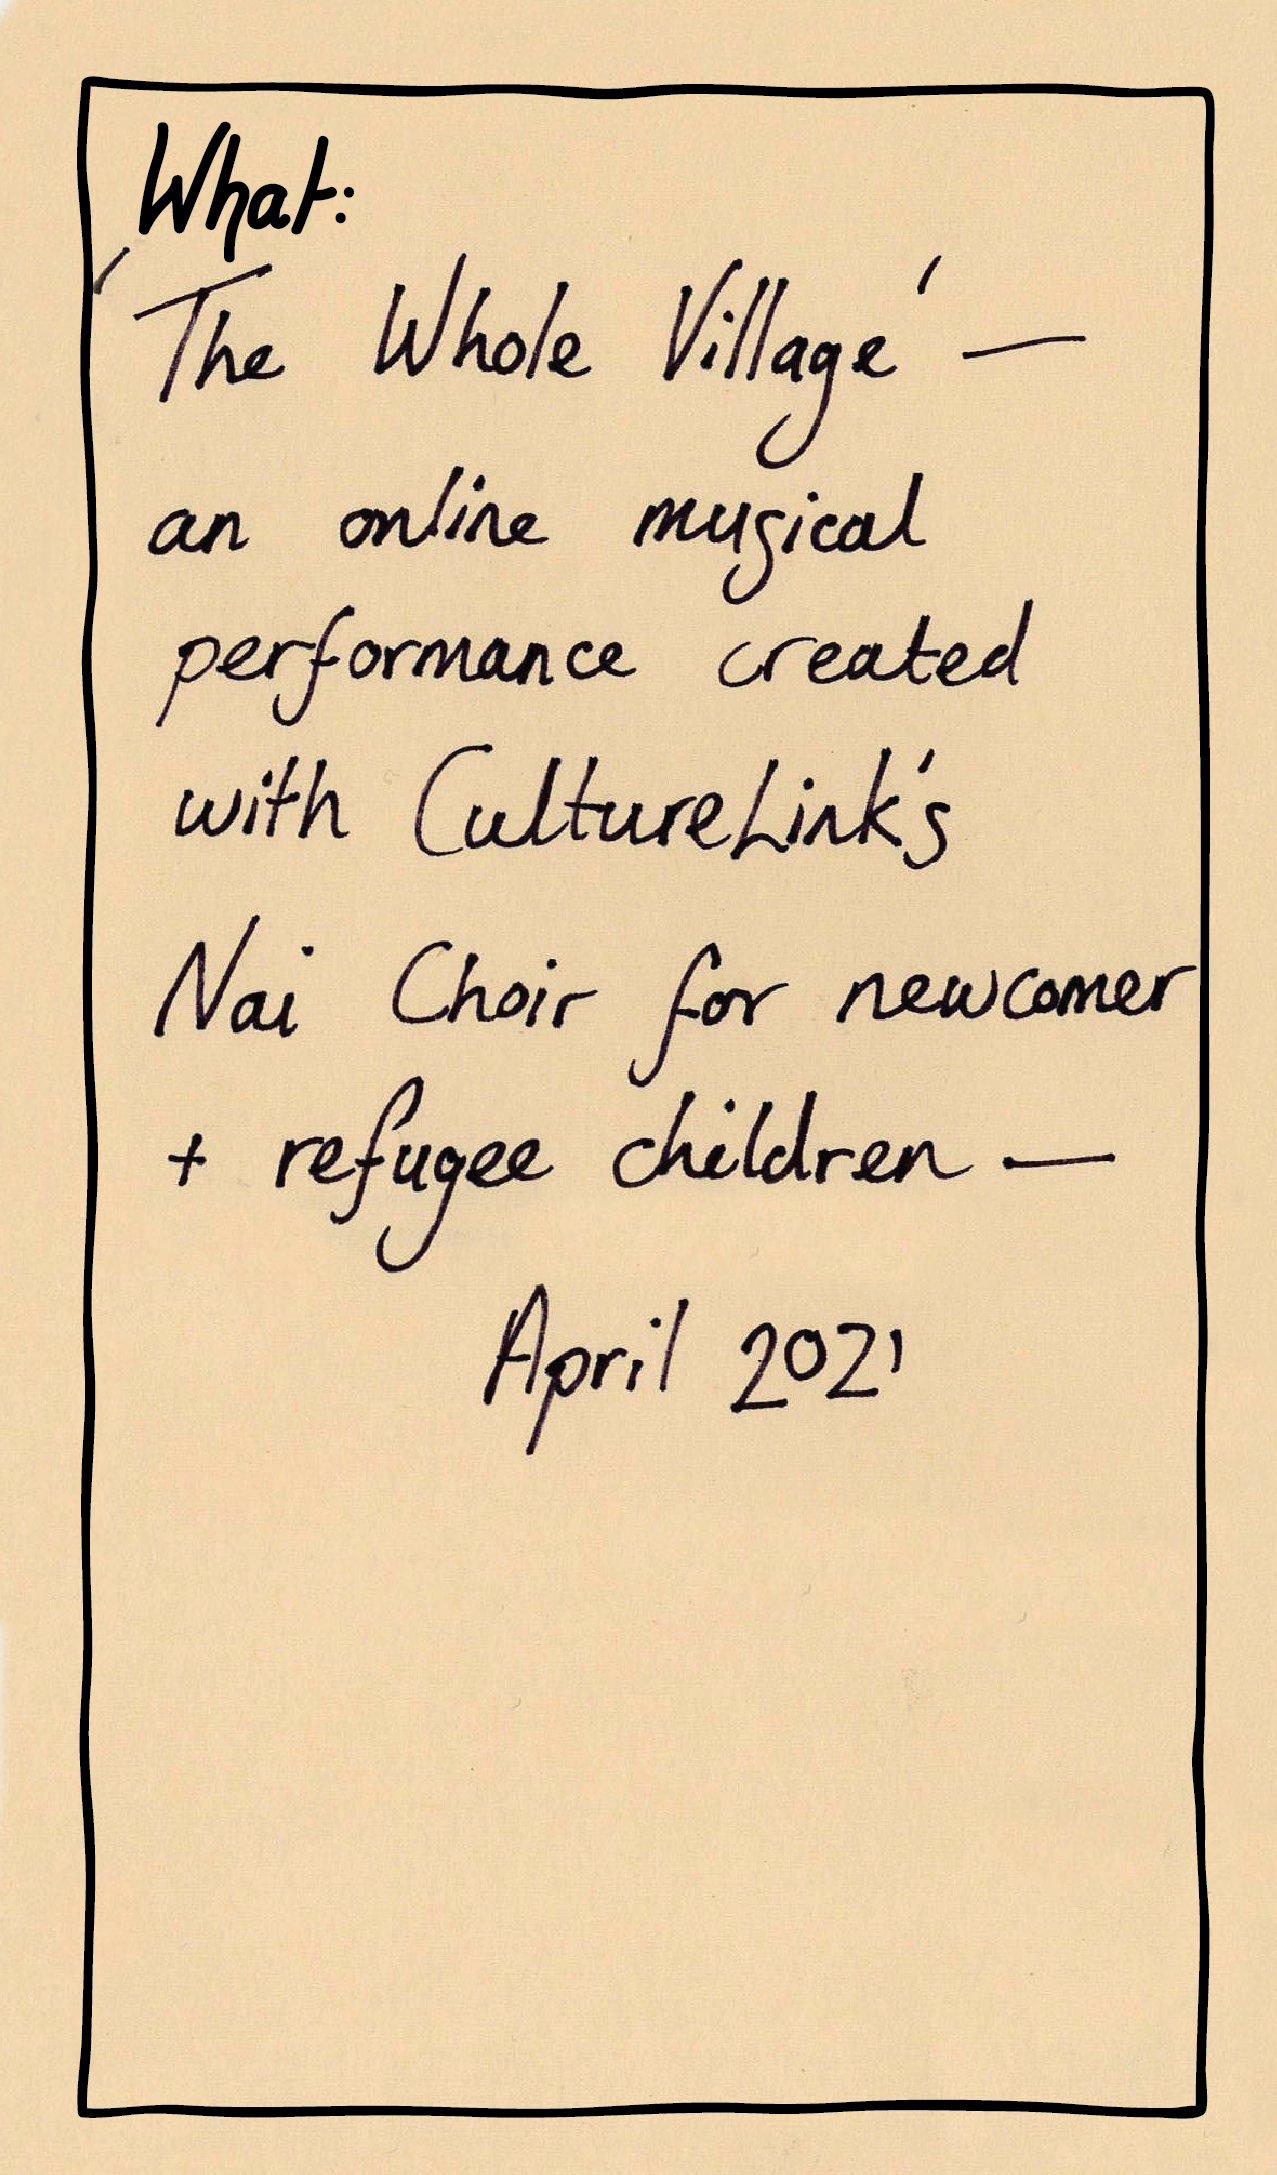 What:
'The Whole Village' —
an online musical
performance created
with CultureLink's
Nai Choir for newcomer
+ refugee children —
April 2021